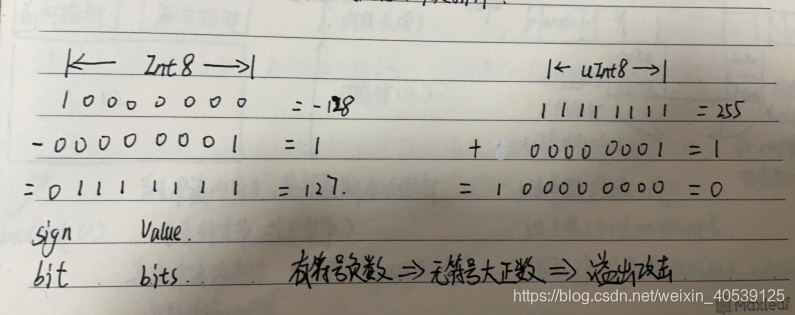 |← Int8 →| |← uInt8 →|
1 0 0 0 0 0 0 0 = -128 1 1 1 1 1 1 1 1 = 255
- 0 0 0 0 0 0 0 1 = 1 + 0000 0001 = 1
= 0 1 1 1 1 1 1 1 = 127. = 1 00000000 = 0
sign Value.
bit bits. 有符号负数 ⇒ 无符号大正数 ⇒ 溢出攻击
https://blog.csdn.net/weixin_40539125
Maxleaf